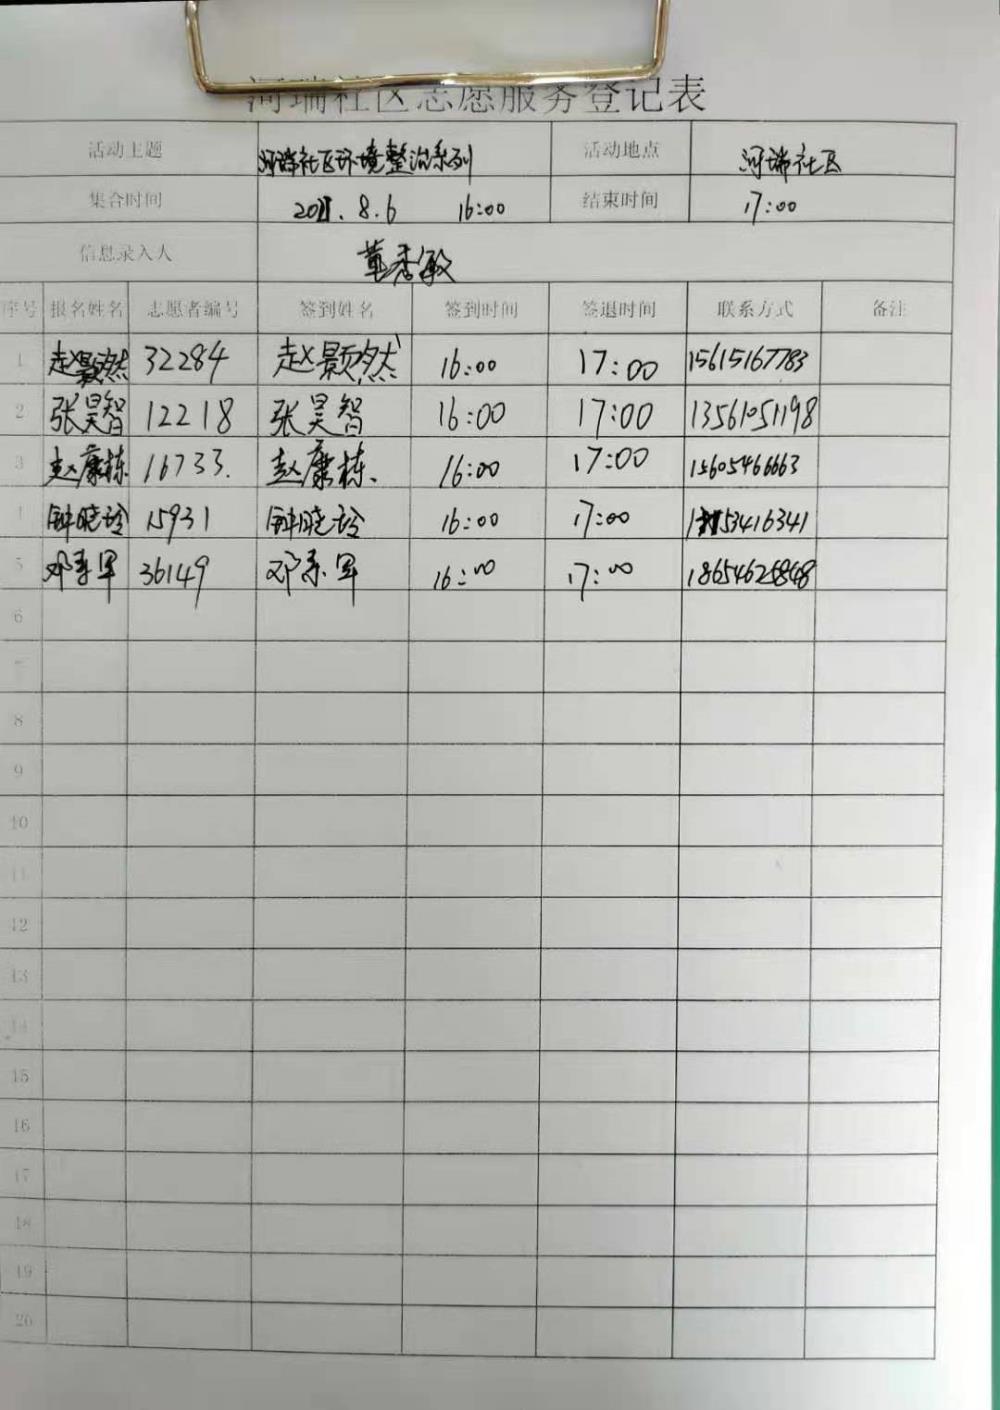 河瑞社区志愿服务登记表
活动主题 河瑞社区环境整治系列 活动地点 河瑞社区
集合时间 8.6 16:00 结束时间 17:00
信息录入人 董秀敏
序号 报名姓名 志愿者编号 签到姓名 签到时间 签退时间 联系方式 备注
1 赵颢然 32284 赵颢然 16:00 17:00 15615167783
2 张昊智 12218 张昊智 16:00 17:00 13561051198
3 赵康栋 16733. 赵康栋、 16:00 17:00 15605466663
4 钟晓玲 15931 钟晓玲 16:00 17:00
5 邓 军 36149 邓 军 16:00 17:00 18654625848
6
7
8
9
10
11
12
13
14
15
16
17
18
19
20